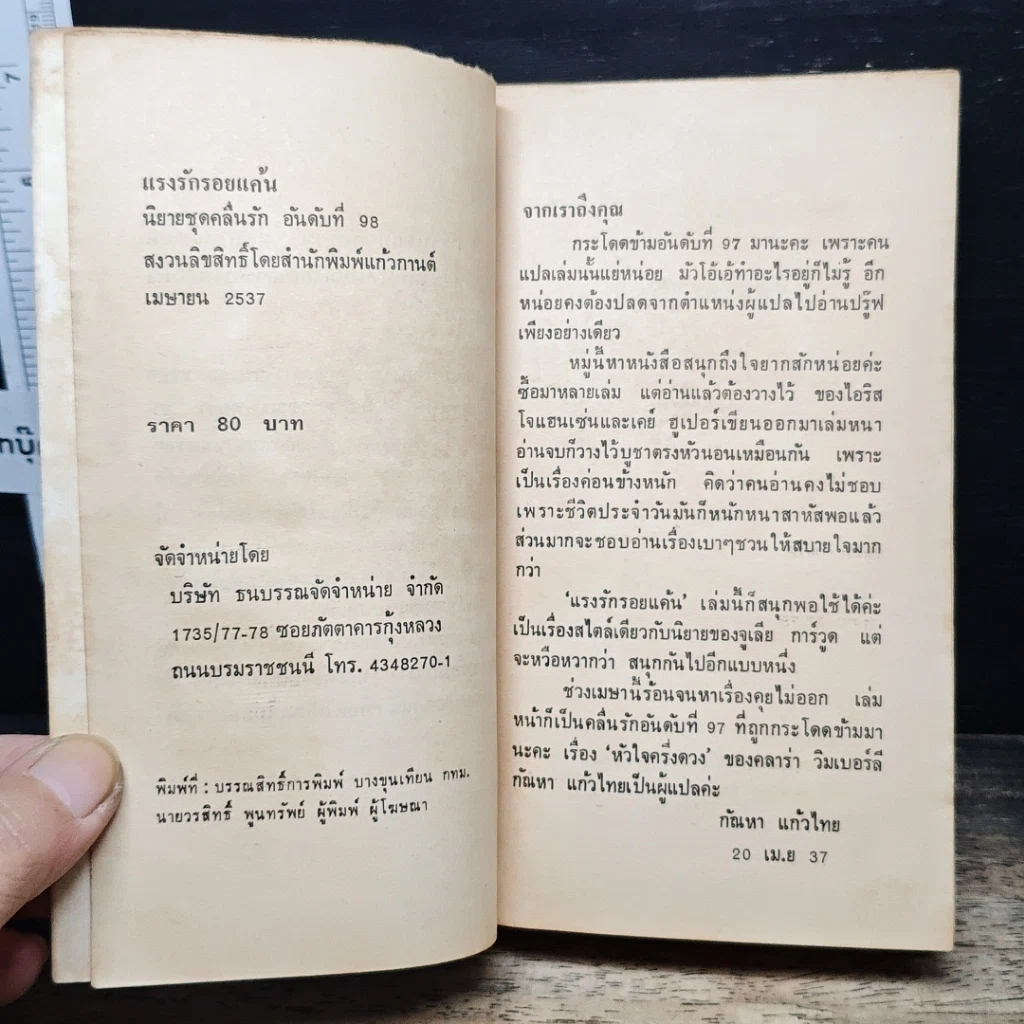 แรงรักรอยแค้น
นิยายชุดคลื่นรัก อันดับที่ 98
สงวนลิขสิทธิ์โดยสำนักพิมพ์แก้วกานต์
เมษายน 2537
ราคา 80 บาท
จัดจำหน่ายโดย
บริษัท ธนบรรณจัดจำหน่าย จำกัด
1735/77-78 ซอยภัตตาคารกุ้งหลวง
ถนนบรมราชชนนี โทร. 4348270-1
พิมพ์ที่ : บรรณสิทธิ์การพิมพ์ บางขุนเทียน กทม.
นายวรสิทธิ์ พูนทรัพย์ ผู้พิมพ์ ผู้โฆษณา
จากเราถึงคุณ
กระโดดข้ามอันดับที่ 97 มานะคะ เพราะคน
แปลเล่มนั้นแย่หน่อย มัวโอ้เอ้ทำอะไรอยู่ก็ไม่รู้ อีก
หน่อยคงต้องปลดจากตำแหน่งผู้แปลไปอ่านปรู๊ฟ
เพียงอย่างเดียว
หมู่นี้หาหนังสือสนุกถึงใจยากสักหน่อยค่ะ
ซื้อมาหลายเล่ม แต่อ่านแล้วต้องวางไว้ ของไอริส
โจแฮนเซ่นและเคย์ ฮูเปอร์เขียนออกมาเล่มหนา
อ่านจบก็วางไว้บูชาตรงหัวนอนเหมือนกัน เพราะ
เป็นเรื่องค่อนข้างหนัก คิดว่าคนอ่านคงไม่ชอบ
เพราะชีวิตประจำวันมันก็หนักหนาสาหัสพอแล้ว
ส่วนมากจะชอบอ่านเรื่องเบาๆชวนให้สบายใจมาก
กว่า
'แรงรักรอยแค้น' เล่มนี้ก็สนุกพอใช้ได้ค่ะ
เป็นเรื่องสไตล์เดียวกับนิยายของจูเลีย การ์วูด แต่
จะหวือหวากว่า สนุกกันไปอีกแบบหนึ่ง
ช่วงเมษานี้ร้อนจนหาเรื่องคุยไม่ออก เล่ม
หน้าก็เป็นคลื่นรักอันดับที่ 97 ที่ถูกกระโดดข้ามมา
นะคะ เรื่อง 'หัวใจครึ่งดวง' ของคลาร่า วิมเบอร์ลี
กัณหา แก้วไทยเป็นผู้แปลค่ะ
กัณหา แก้วไทย
20 เม.ย 37